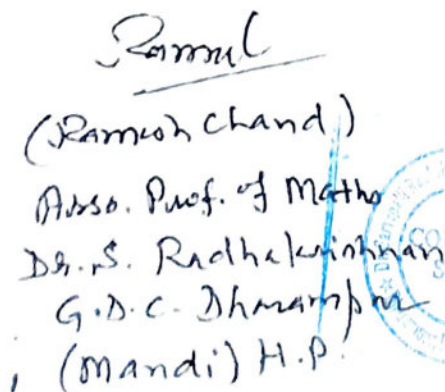 (Ramesh Chand)
Asso. Prof. of Maths
Dr. S. Radhakrishnan
G.D.C. Dharampur
(Mandi) H.P.